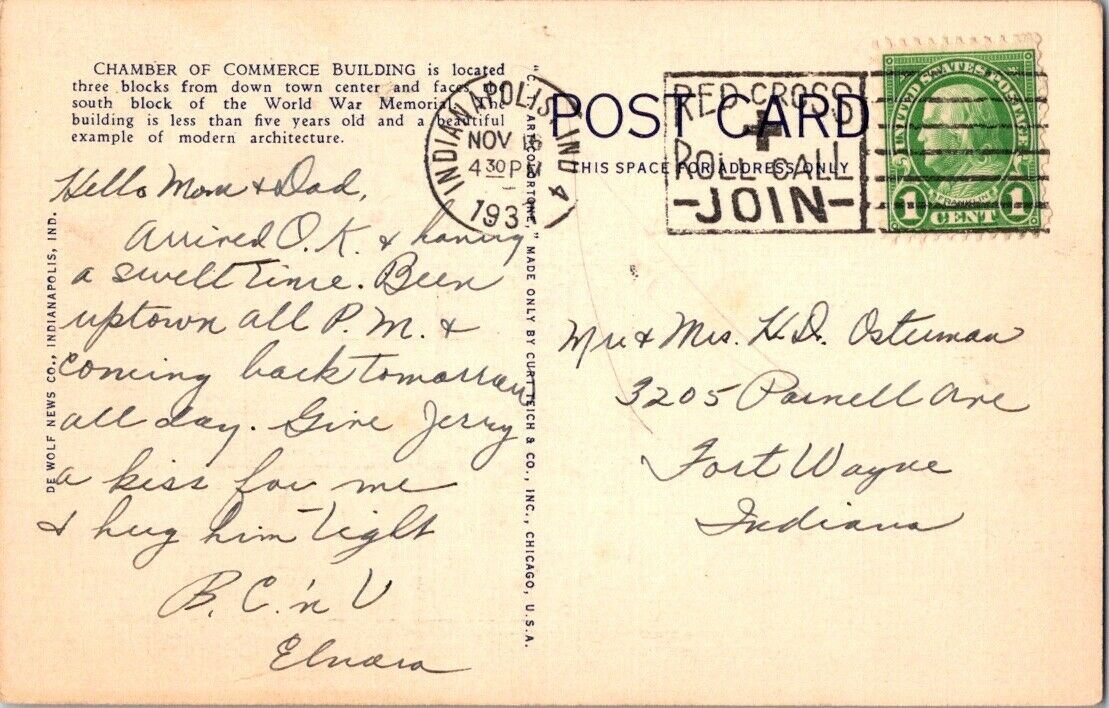 CHAMBER OF COMMERCE BUILDING is located
three blocks from down town center and faces the
south block of the World War Memorial. The
building is less than five years old and a beautiful
example of modern architecture.
Hello Mom & Dad,
Arrived O.K. & having
a swell time. Been
uptown all P.M. &
coming back tomorrow
all day. Give Jerry
a kiss for me
& hug him tight
B. C.'n U
DE WOLF NEWS CO., INDIANAPOLIS, IND.
"C. T. ART-COLORTONE," MADE ONLY BY CURT TEICH & CO., INC., CHICAGO, U.S.A.
INDIANAPOLIS, IND 4
NOV
4 30 PM
193
POST CARD
THIS SPACE FOR ADDRESS ONLY
RED CROSS
ROLL CALL
-JOIN-
UNITED STATES POSTAGE
FRANKLIN
1 CENT 1
Mr & Mrs. H. D. Osterman
3205 Parnell Ave
Fort Wayne
Indiana